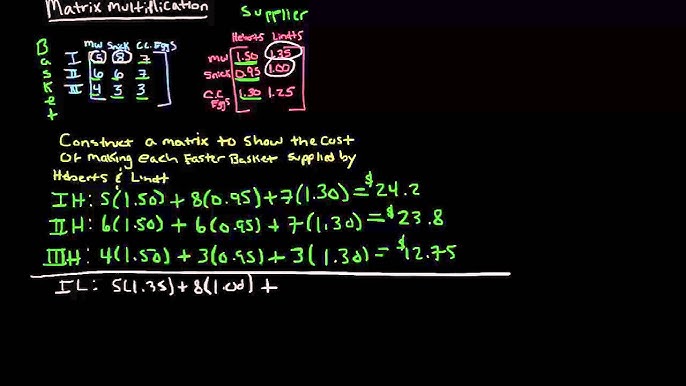 Matrix Multiplication
Supplier
Basket
MW Snick C.C. Eggs
I 5 8 7
II 6 6 7
III 4 3 3
Heberts Lindts
MW 1.50 1.35
Snick 0.95 1.00
C.C. Eggs 1.30 1.25
Construct a matrix to show the cost
Of making each Easter Basket supplied by
Heberts & Lindt
IH: 5(1.50) + 8(0.95) + 7(1.30) = $24.2
IIH: 6(1.50) + 6(0.95) + 7(1.30) = $23.8
IIIH: 4(1.50) + 3(0.95) + 3(1.30) = $12.75
IL: 5(1.35) + 8(1.00) +